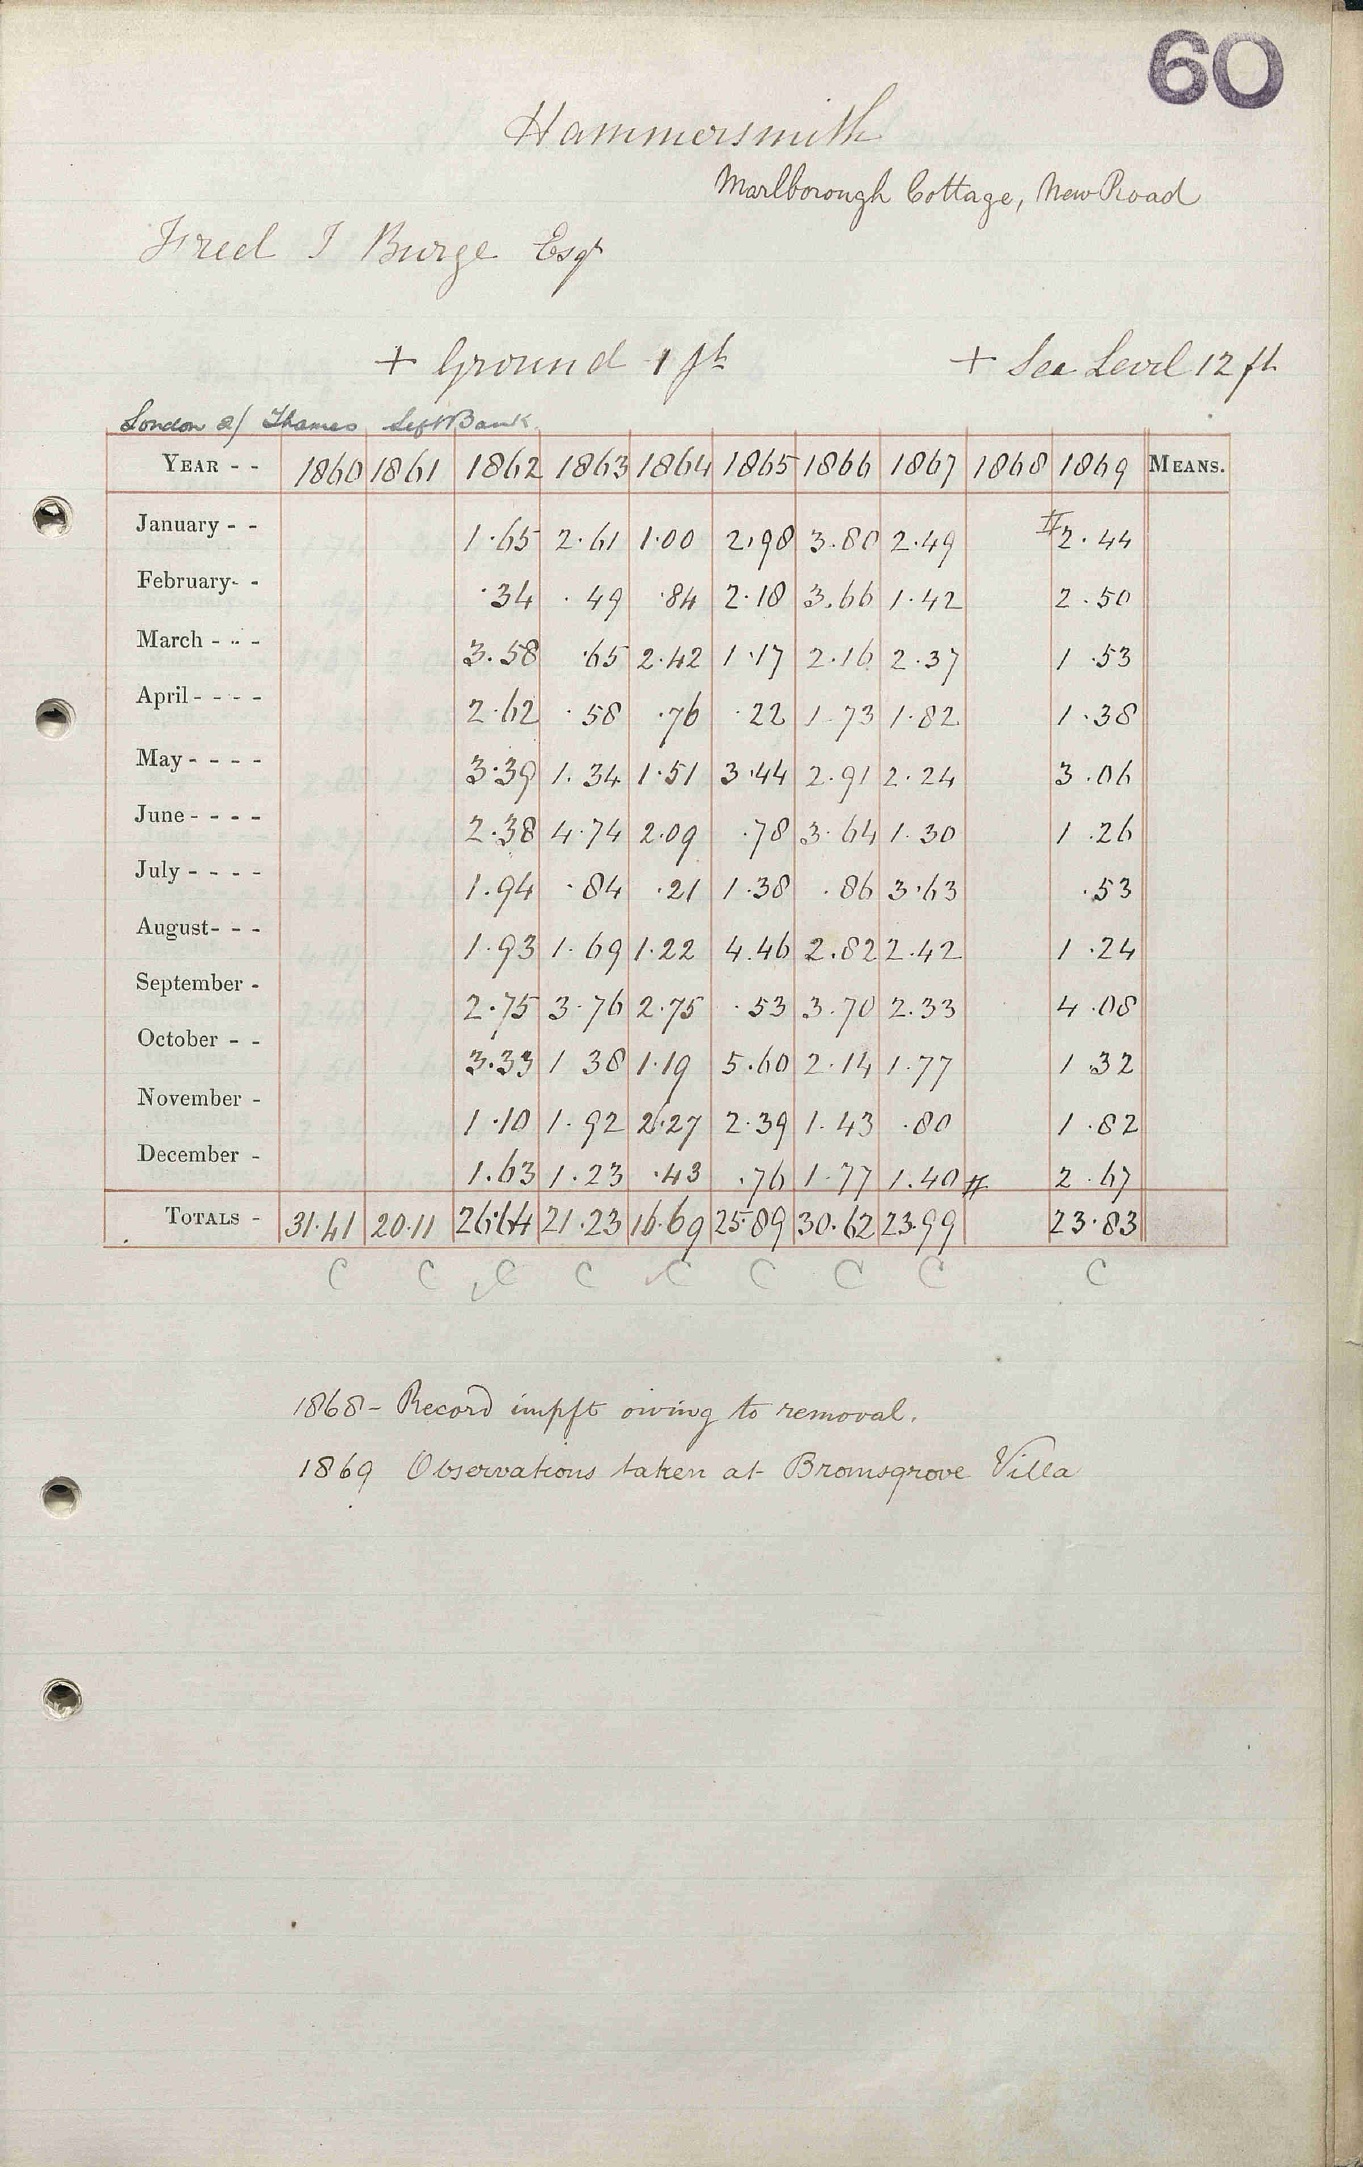 60
Hammersmith
Marlborough Cottage, New Road
Fred J Burge Esqr
+ Ground 1 ft + Sea Level 12 ft
London a/ Thames Left Bank.
YEAR - - 1860 1861 1862 1863 1864 1865 1866 1867 1868 1869 MEANS.
January - - 1.65 2.61 1.00 2.98 3.80 2.49 # 2.44
February - - .34 .49 .84 2.18 3.66 1.42 2.50
March - - - 3.58 .65 2.42 1.17 2.16 2.37 1.53
April - - - - 2.62 .58 .76 .22 1.73 1.82 1.38
May - - - - 3.39 1.34 1.51 3.44 2.91 2.24 3.06
June - - - - 2.38 4.74 2.09 .78 3.64 1.30 1.26
July - - - - 1.94 .84 .21 1.38 .86 3.63 .53
August - - - 1.93 1.69 1.22 4.46 2.82 2.42 1.24
September - 2.75 3.76 2.75 .53 3.70 2.33 4.08
October - - 3.33 1 38 1.19 5.60 2.14 1.77 1.32
November - 1.10 1.92 2.27 2.39 1.43 .80 1.82
December - 1.63 1.23 .43 .76 1.77 1.40 # 2.67
TOTALS - 31.41 20.11 26.64 21.23 16.69 25.89 30.62 23.99 23.83
C C C C C C C C C
1868 - Record impft owing to removal.
1869 Observations taken at Bromsgrove Villa